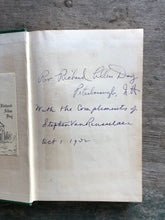 For Richard Allen Day
Peterborough, N.H.
With the Complements of
Stephen Van Rensselaer
Oct 1 1932
Richard
Allen
Day